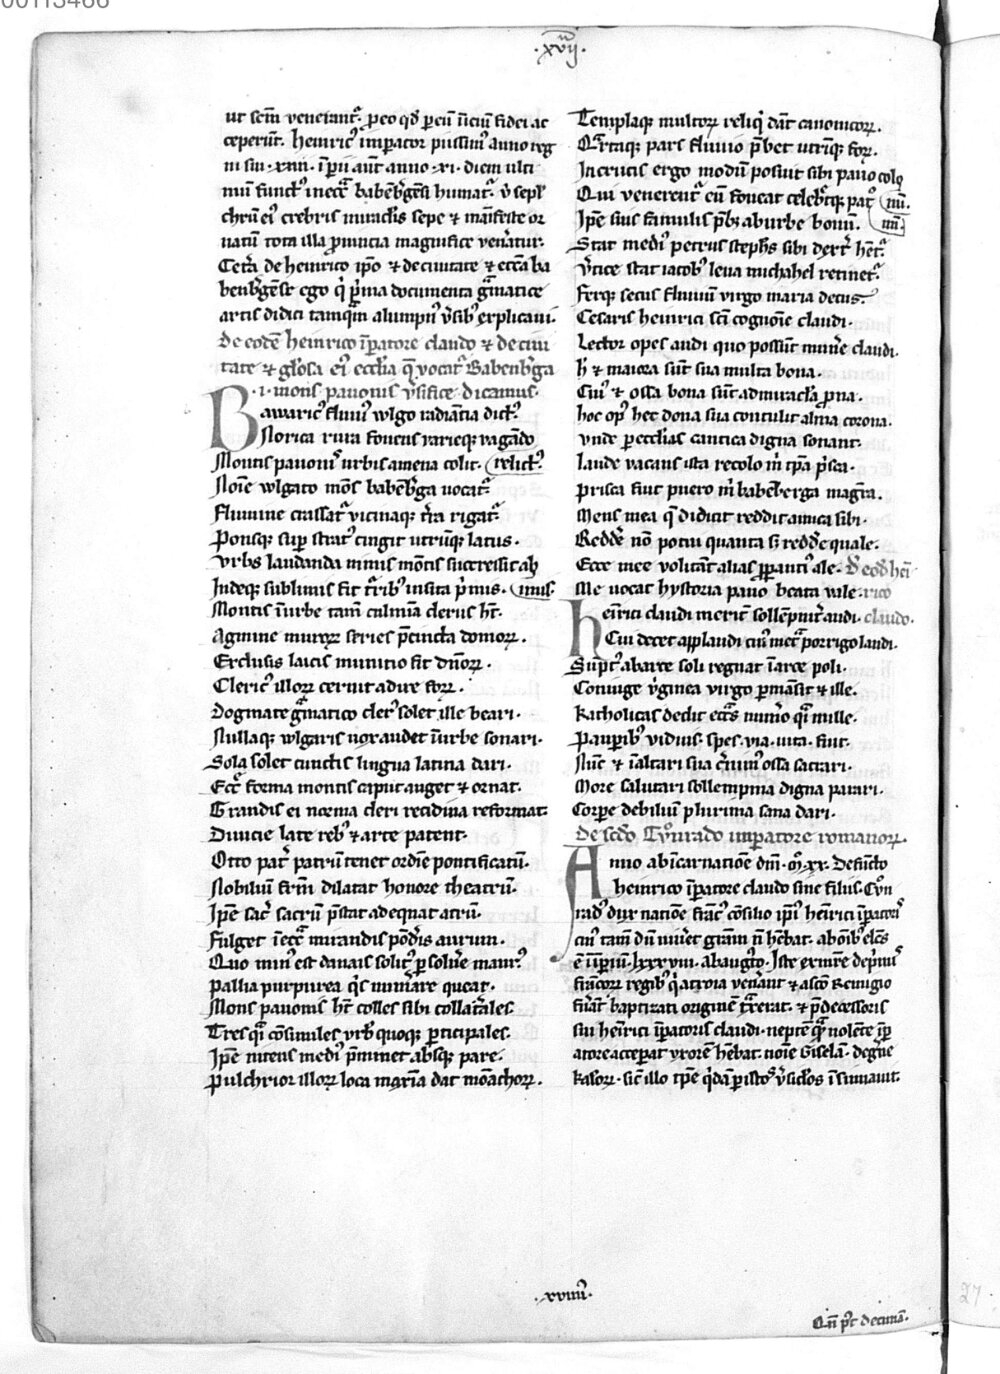 00113466
·xviij·
ut sem̄ veneiant᷑. p eo qd̓ p eū ūcium fidei ac
ceperūt. heinricꝰ imperator piissimꝰ anno reg
ni sui ·xxiiii· īperii aūt anno ·xi· diem ulti
mū functꝰ in ecc̄ babenbg̓ensi humat᷑.
chrum eiꝰ crebris miraclis sepe ⁊ manifeste or
natū tota illa ꝓuincia magnifice venerat᷑.
Cet̓a de heinrico ip̄o ⁊ de ciuitate ⁊ ecc̄a ba
benbg̓ense ego qi p̓ma documenta g̓mmatice
artis didici tamq̄m alumpnꝰ v̓sibꝰ explicaui.
De eodē heinrico īperatore claudo ⁊ de ciui
tate ⁊ gl̓osa eiꝰ ecclīa q̄ vocat᷑ Babenbg̓a
B ·i· mons pauonis v̓sifice dicamus.
awaricꝰ fluuiꝰ wlgo radiantia dictꝰ.
Norica rura fouens rarieqꝫ vagando
Montis pauonis urbis amena colit. relictꝰ.
Noīe wlgato mōs babēbg̓a uocat᷑.
Flumine crassat᷑ vicinaqꝫ t̓ra rigat᷑.
Ponsqꝫ sup̄ stratꝰ cingit utrūqꝫ latus.
Vrbs laudanda nimis mōtis successit ab
Indeqꝫ sublimis fit t̓ribꝰ insita p̓mus. imis.
Montis ī urbe tam̄ culmīa clerus h̄t.
Agmine muroꝝ series p̄cincta domoꝝ.
Exclusis laicis munitio fit dn̄oꝝ.
Clericꝰ illoꝝ cernit adire foꝝ.
Dogmate g̓mmatico clerꝰ solet ille beari.
Nullaqꝫ wlgaris uox audet ī urbe sonari.
Sola solet cunctis lingua latina dari.
Ecc̄ forma montis caput auget ⁊ ornat.
Grandis ei norma cleri recidiua reformat.
Diuicie late rebꝰ ⁊ arte patent.
Otto pat̓ patrū tenet ordīe pontificatū.
Nobiliū firm̄ dilatat honore theatrū.
Ipē sac̓ sacrū p̄stat adequat atrū.
Fulget ī ecc̄ mirandis pōd̓is aurum.
Quo minꝰ est danais solitꝰ p soluē maurꝰ.
Pallia purpurea qis numāre queat.
Mons pauonis h̄t colles sibi collat̓ales.
Tres qi cōsimules vrbꝭ quoqꝫ ꝑticipales.
Ipē nitens mediꝰ p̄minet absqꝫ pare.
Pulchrior illoꝝ loca maxīa dat monachoꝝ.
Templaqꝫ multoꝝ reliqꝭ dāt canonicoꝝ.
Q̓rtaqꝫ pars fluuio p̄bet utriqꝫ foꝝ.
In crucis ergo modū posuit sibi pauo colo
Qui venerent᷑ eū foueat celeb̓tqꝫ pat᷑ nū.
Ipē suis famulis p̄bꝫ ab urbe bonū. nū.
Stat mediꝰ petrus steph̄s sibi dext̓ h̄et᷑.
V̓tice stat iacobꝰ leua michahel retinet᷑.
Ferqꝫ secus fluuiū virgo maria decus.
Cesaris heinrici scī cognoīe claudi.
Lector opes audi quo possūt mun̄e claudi.
h̄ ⁊ maiora sūt sua multa bona.
Ciuꝰ ⁊ ossa bona sūt ad miracl̓a ꝓna.
hoc opꝰ hec dona sua contulit alma corona.
Vnde p ecclesias cantica digna sonant.
Laude vacans ista recolo m̄ tp̄a p̓sca.
Prisca fuit puero m̄ babenberga mag̓ra.
Mens mea q̄ didicit reddit amica sibi.
Redd̓e nō potui quanta sꝫ redd̓e quale.
Ecce mee volitāt alias ꝓpanti ale. De eod̓ hei
Me uocat hystoria pauo beata vale. rico
heinrici claudi meritꝭ sollempnit̓ audi. claudo.
Cui decet applaudi ciuꝰ met̓ porrigo laudi.
Supt̓ abarce soli regnat ī arce poli.
Coniuge v̓ginea virgo p̄mansit ⁊ ille.
Katholicas dedit ecc̄s num̄o q̄i mille.
Paupibꝰ viduis. spes. via. uita. fuit.
Nūc ⁊ ī altari sua c̓nimꝰ ossa sacrari.
More salutari sollempnia digna parari.
Corpē debiliū plurima sana dari.
De sc̄do Cūrado imperatore romanoꝝ.
Anno ab īcarnatiōe dn̄i ·Mͦ·xx· defuncto
heinrico īperatore claudo sine filiis. Cūn
radꝰ dux natiōe francꝰ cōsilio ip̄iꝰ heinrici īperatoris
ciuꝰ tam̄ dū uiueret gratiā nō h̄ebat. ab oīibꝰ elcūs
ē īperiū. lxxxviii. ab augusto. Iste ex m̄re de p̓mis
francoꝝ regibꝰ qi a troia ven̄ant ⁊ a scō Remigio
fuant baptizati origine t̓xerat. ⁊ p̄decessoris
sui heinrici īperatoris claudi. neptē q̄m nolente īp
atore acceperat vxorē h̄ebat. noīe Giselā. de gn̄e
karoli. sic̄ illo tp̄e qidā p istos v̓siclos īsinuauit.
·xviiii·
27